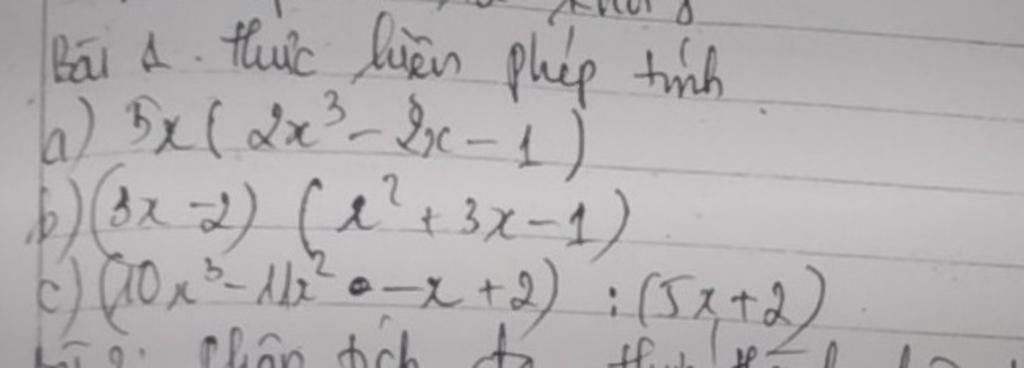 Bài 1. thực hiện phép tính
a) 5x( 2x³ - 2x - 1 )
b) (3x - 2) ( x² + 3x - 1 )
c) (10x³ - 11x² - x + 2) : (5x + 2)
phân tích